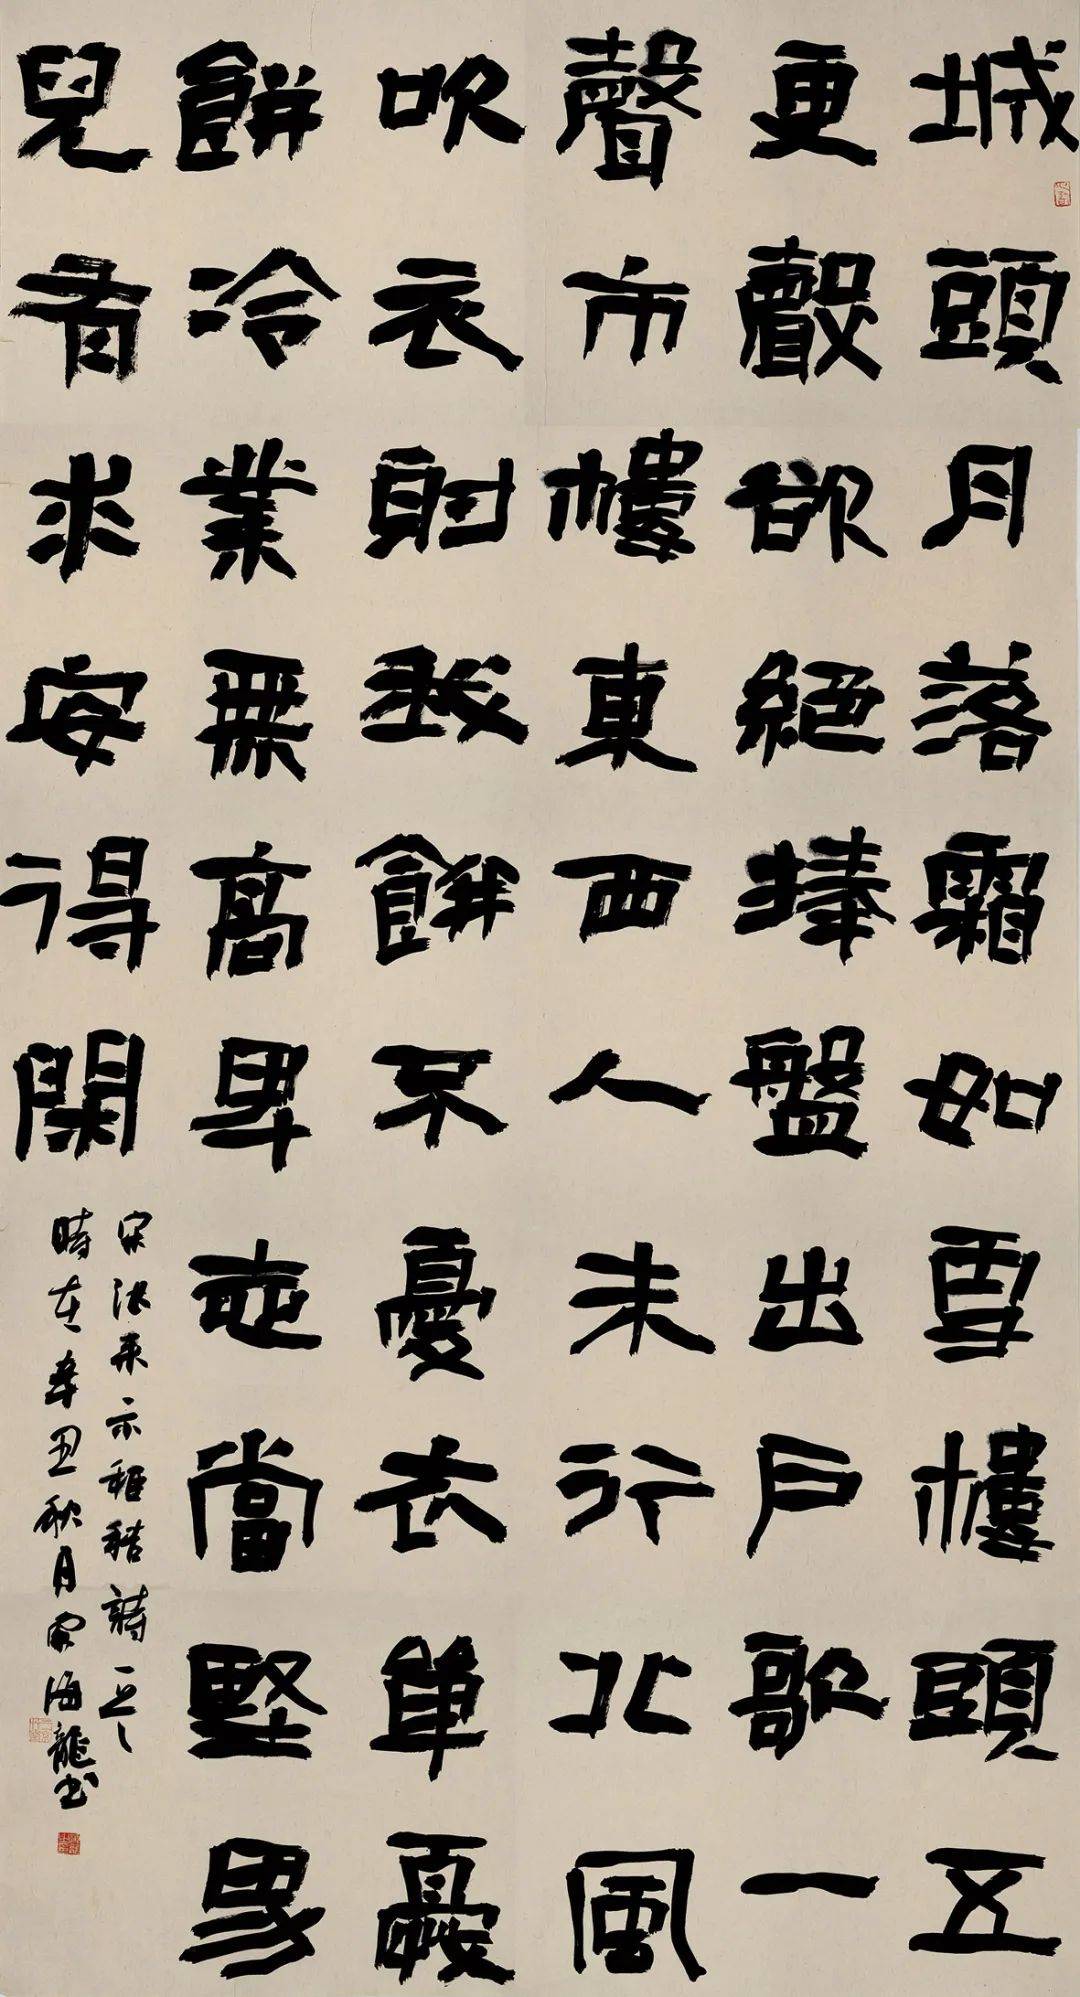 城頭月落霜如雪樓頭五
更聲欲絕捧盤出戶歌一
聲市樓東西人未行北風
吹衣射我餅不憂衣單憂
餅冷業無高卑志當堅男
兒有求安得閑
宋張耒示秬秸詩一首
時在辛丑秋月海龍書